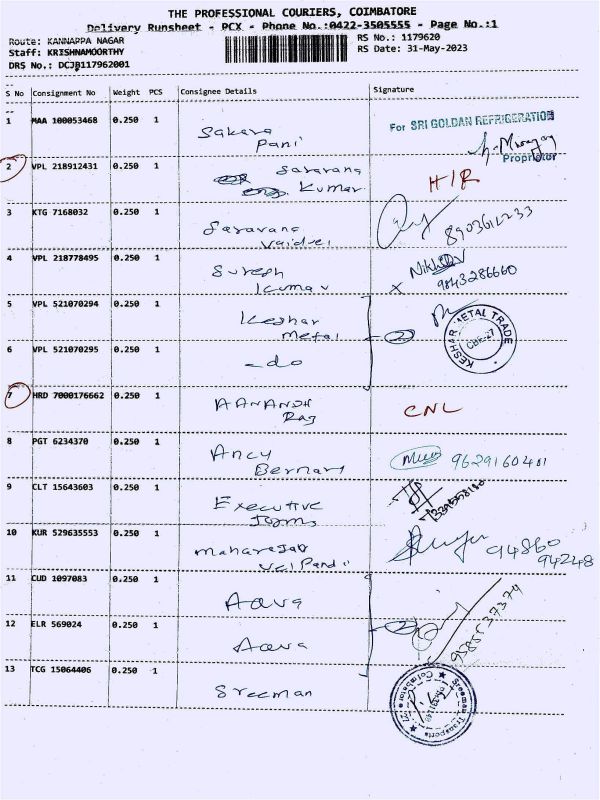 THE PROFESSIONAL COURIERS, COIMBATORE
Delivery Runsheet - PCX - Phone No.:0422-3505555 - Page No.:1
Route: KANNAPPA NAGAR
RS No.: 1179620
Staff: KRISHNAMOORTHY
RS Date: 31-May-2023
DRS No.: DCJB117962001
S No Consignment No Weight PCS Consignee Details Signature
1 MAA 100053468 0.250 1 Sakara
Pani
For SRI GOLDAN REFRIGERATION
Proprietor
2 VPL 218912431 0.250 1 Saravana
Kumar
H/R
3 KTG 7168032 0.250 1 Saravana
Vaidvel
8903612233
4 VPL 218778495 0.250 1 Suresh
Kumar
X 9843286660
5 VPL 521070294 0.250 1 Keshar
Metal
2
KESHAR METAL TRADE
CBE-27
6 VPL 521070295 0.250 1 -do
7 HRD 7000176662 0.250 1 AANANDH
Raj
CNL
8 PGT 6234370 0.250 1 Ancy
Bernart
9 CLT 15643603 0.250 1 Executive
10 KUR 529635553 0.250 1
94860
94248
11 CUD 1097083 0.250 1 Aava
2
12 ELR 569024 0.250 1 Aava
9585537374
13 TCG 15064406 0.250 1 Sreeman
Sreeman Transports
Coimbatore